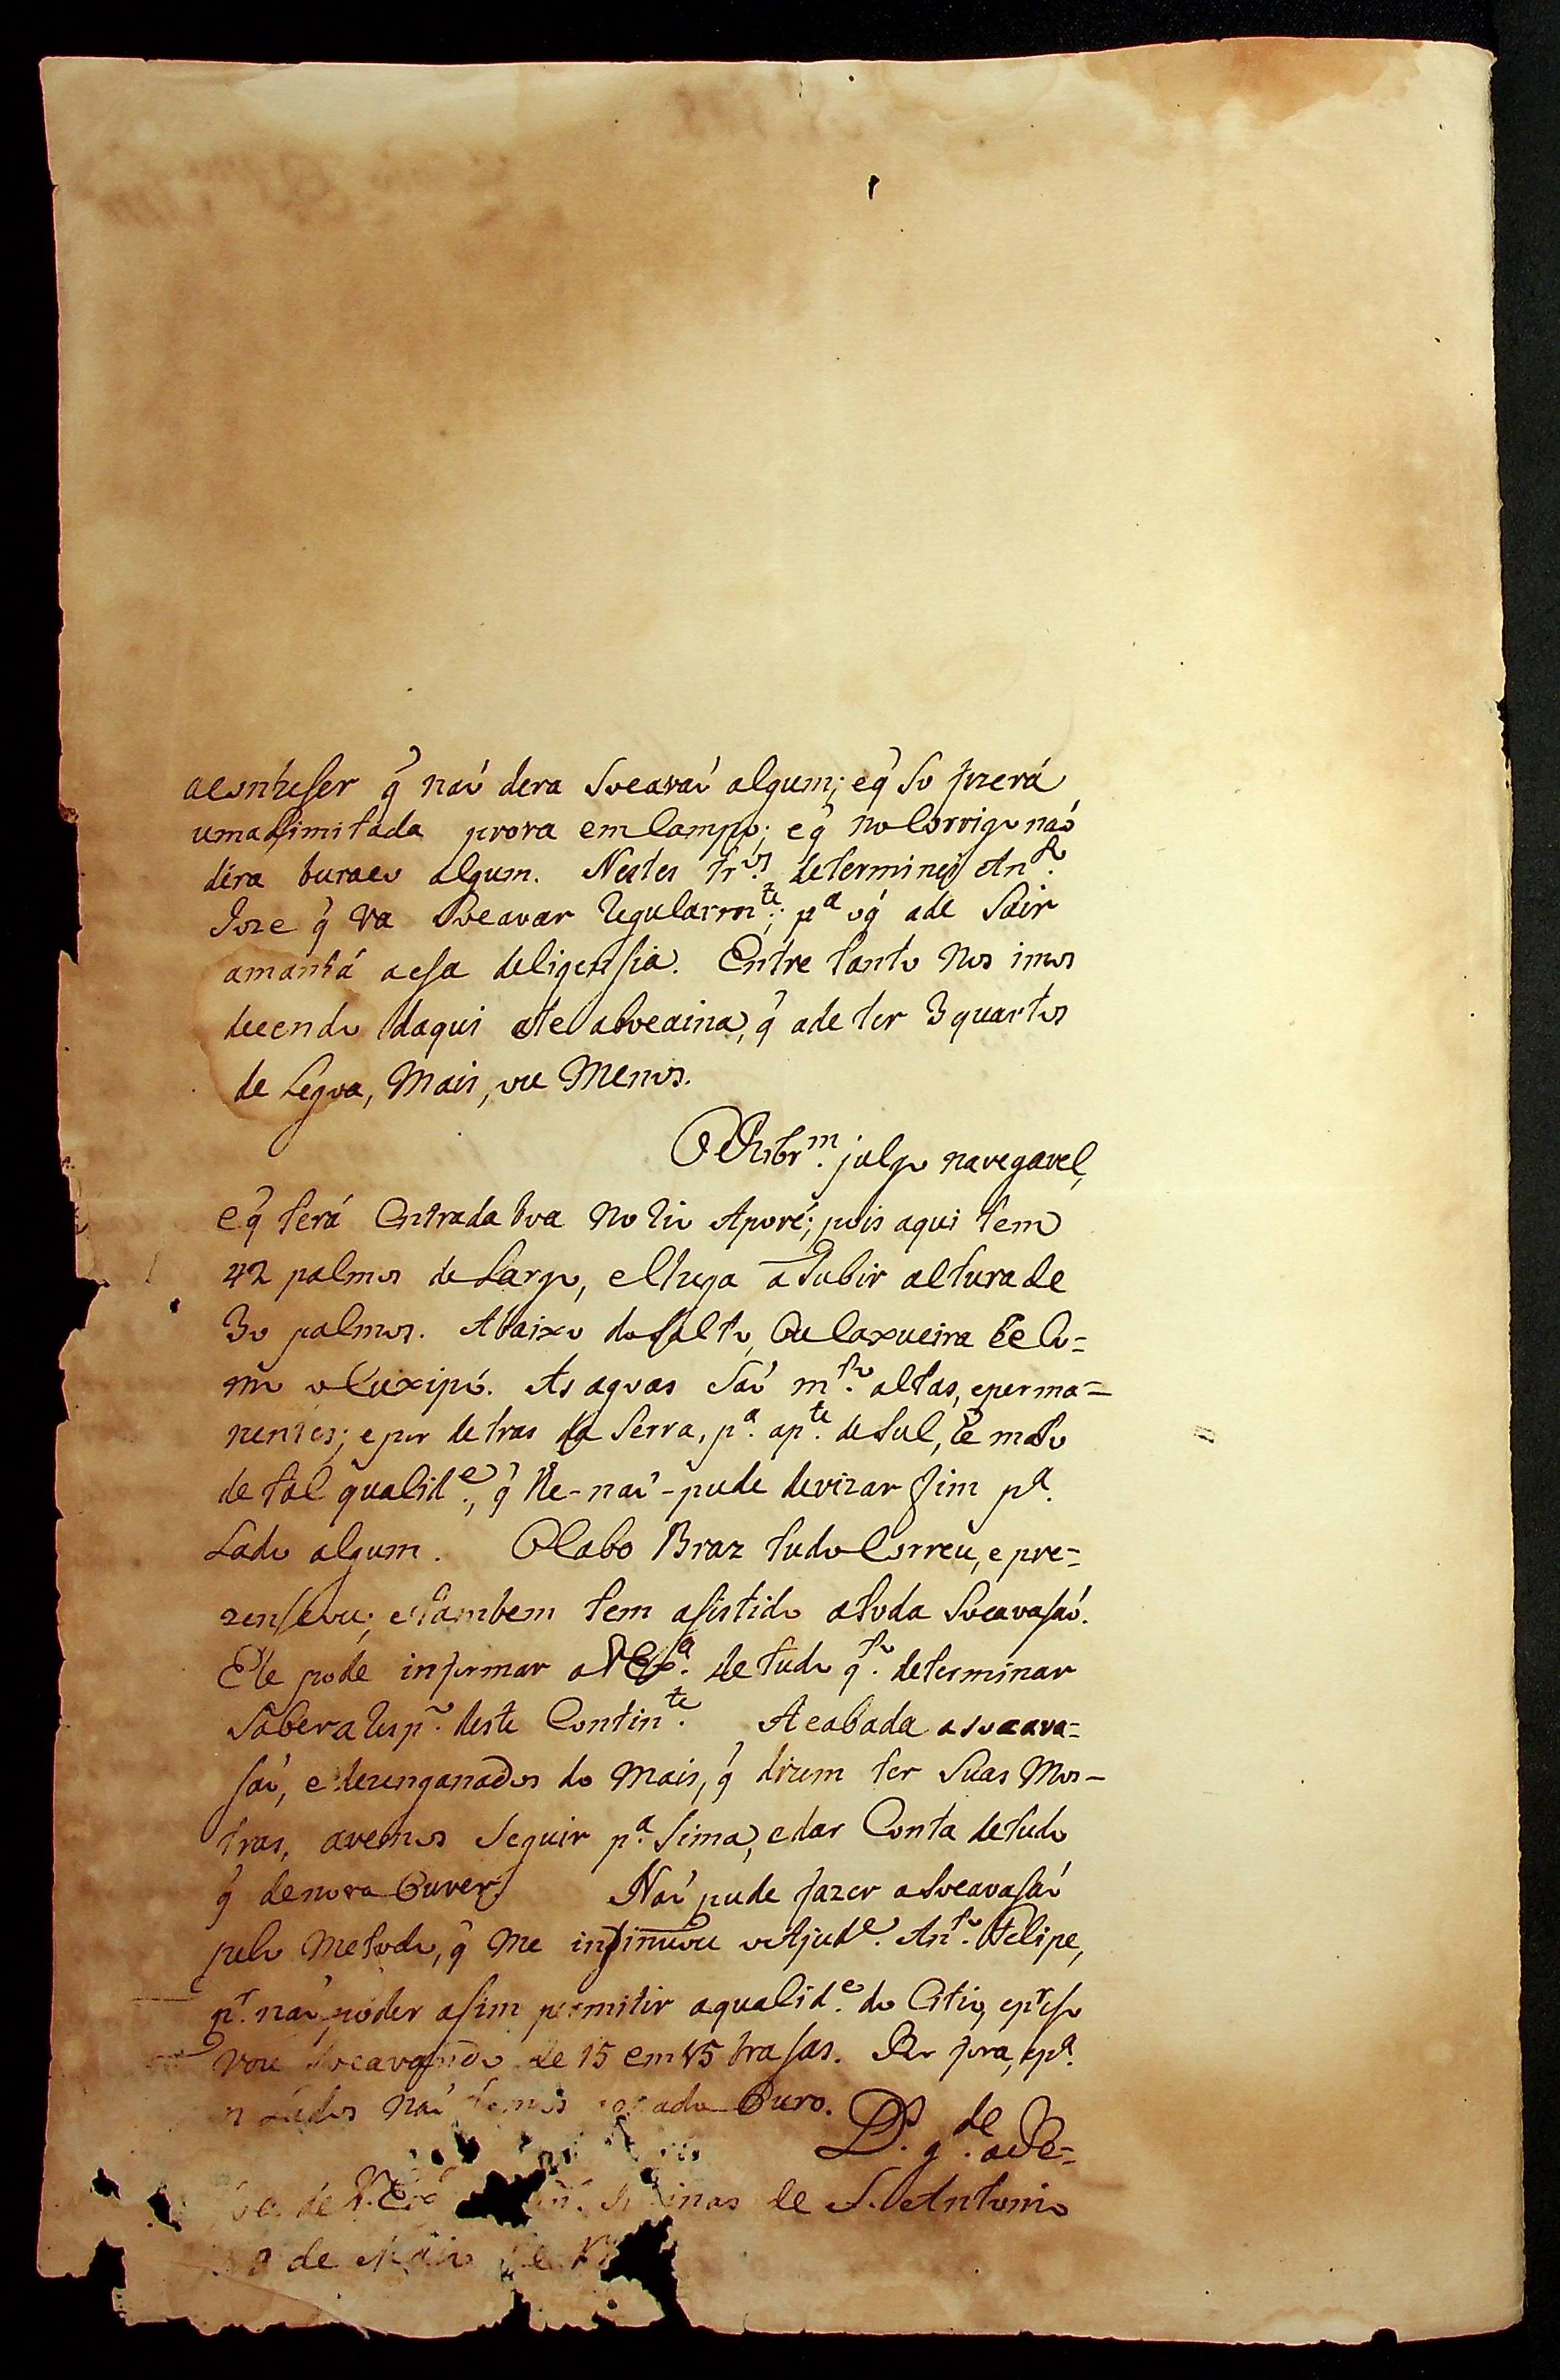 aconheser q̃ naó dera Socavaó algum; eq̃ So fizerá
uma Limitada prova em Campo; eq̃ no Corrigo naó
déra buraco algum. Nestes tr.ᵒˢ determinei An.ᵗᵒ
Joze q̃ va Socavar regularm.ᵗᵉ; pᵃ oq̃ ade Sáir
amanhá aesa deligensia. Entre tanto Nos imos
decendo daqui ate abocaina, q̃ ade ter 3 quartos
de Legoa, Mais, ou Menos.
O Ribr.ᵐ julgo navegavel,
eq̃ terá Entrada boa No rio Aporé; pois aqui tem
42 palmos de Largo, e Chega a Subir altura de
30 palmos. Abaixo do Salto, ou Caxueira he Co=
mo o Cuxipó. As agoas Saó m.ᵗᵒ altas, eperma=
nentes; e por detras da Serra, p.ᵃ ap.ᵗᵉ de Sul, he mato
de tal qualid.ᵉ, q̃ lhe-naó-pude devizar fim p.ᵃ
Lado algum. O Cabo Braz tudo Correu, e pre=
zensiou; e tambem tem asistido atoda Socavasaó.
Ele pode informar a V Ex.ᵃ de tudo q.ᵗᵒ determinar
Saber a resp.ᵒ deste Contin.ᵗᵉ Acabada a socava=
saó, e dezenganados do Mais, q̃ dizem ter Suas Mos-
tras, avemos Seguir p.ᵃ Sima, e dar Conta de tudo
q̃ denovo Ouver. Naó pude fazer a Socavasaó
pelo Metodo, q̃ Me insinuou o Ajud.ᵉ An.ᵗᵒ Felipe,
p.ʳ naó poder asim permitir aqualid.ᵉ do Citio, ep.ʳ eso
vou Socavando de 15 em 15 brasas. Por hora, ep.ᵃ
Lados naó temos Ouro.
D.ˢ g.ᵈᵉ aPe=
soa de V. Exᵃ Minas de S. Antonio
de Maio de 17